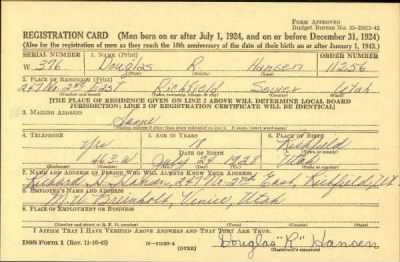 FORM APPROVED
Budget Bureau No. 33-R012-42
REGISTRATION CARD (Men born on or after July 1, 1924, and on or before December 31, 1924)
(Also for the registration of men as they reach the 18th anniversary of the date of their birth on or after January 1, 1943.)
SERIAL NUMBER 1. NAME (Print) ORDER NUMBER
W 376 Douglas R Hansen 11256
(First) (Middle) (Last)
2. PLACE OF RESIDENCE (Print)
247 No. 2nd East Richfield Sevier Utah
[THE PLACE OF RESIDENCE GIVEN ON LINE 2 ABOVE WILL DETERMINE LOCAL BOARD
JURISDICTION; LINE 2 OF REGISTRATION CERTIFICATE WILL BE IDENTICAL]
3. MAILING ADDRESS
Same
4. TELEPHONE 5. AGE IN YEARS 6. PLACE OF BIRTH
yes 18 Richfield
DATE OF BIRTH
463 W July 24 1928 Utah
7. NAME AND ADDRESS OF PERSON WHO WILL ALWAYS KNOW YOUR ADDRESS
247 No. 2nd East, Richfield, Ut
8. EMPLOYER'S NAME AND ADDRESS
Venice, Utah
9. PLACE OF EMPLOYMENT OR BUSINESS
I AFFIRM THAT I HAVE VERIFIED ABOVE ANSWERS AND THAT THEY ARE TRUE.
DSS Form 1 (Rev. 11-16-42) (OVER) Douglas "R" Hansen
(Registrant's signature)